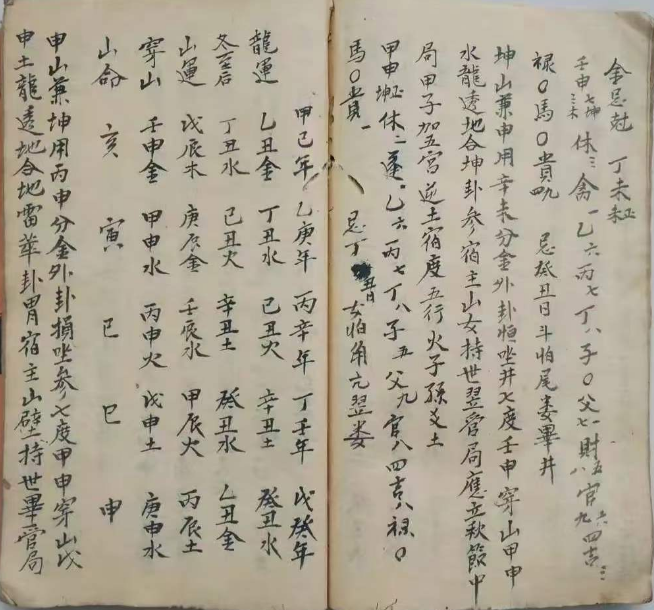 金忌尅 丁未秬
壬申 七坤 三未 休三 禽一 乙六丙七丁八子〇父七一財五八官九六四吉三三
禄〇馬〇貴 忌癸丑日斗怕尾娄畢井
坤山兼申用辛未分金外卦恒坐井七度壬申穿山甲申
水龍透地合坤卦参宿主山女持世翌管局應立秋節中
局甲子加五宫逆土宿度五行火子孫爻土
甲申 休二 蓬 乙六丙七丁八子五父九官八四吉八禄〇
馬〇貴一 忌丁丑日女怕角亢翌娄
甲己年 乙庚年 丙辛年 丁壬年 戊癸年
龍運 乙丑金 丁丑水 己丑火 辛丑土 癸丑水
冬至后 丁丑水 己丑火 辛丑土 癸丑水 乙丑金
山運 戊辰木 庚辰金 壬辰水 甲辰火 丙辰土
穿山 壬申金 甲申水 丙申火 戊申土 庚申水
山命 亥 寅 巳 巳 申
申山兼坤用丙申分金外卦損坐参七度甲申穿山戊
申土龍透地合地雷萃卦胃宿主山壁持世畢管局